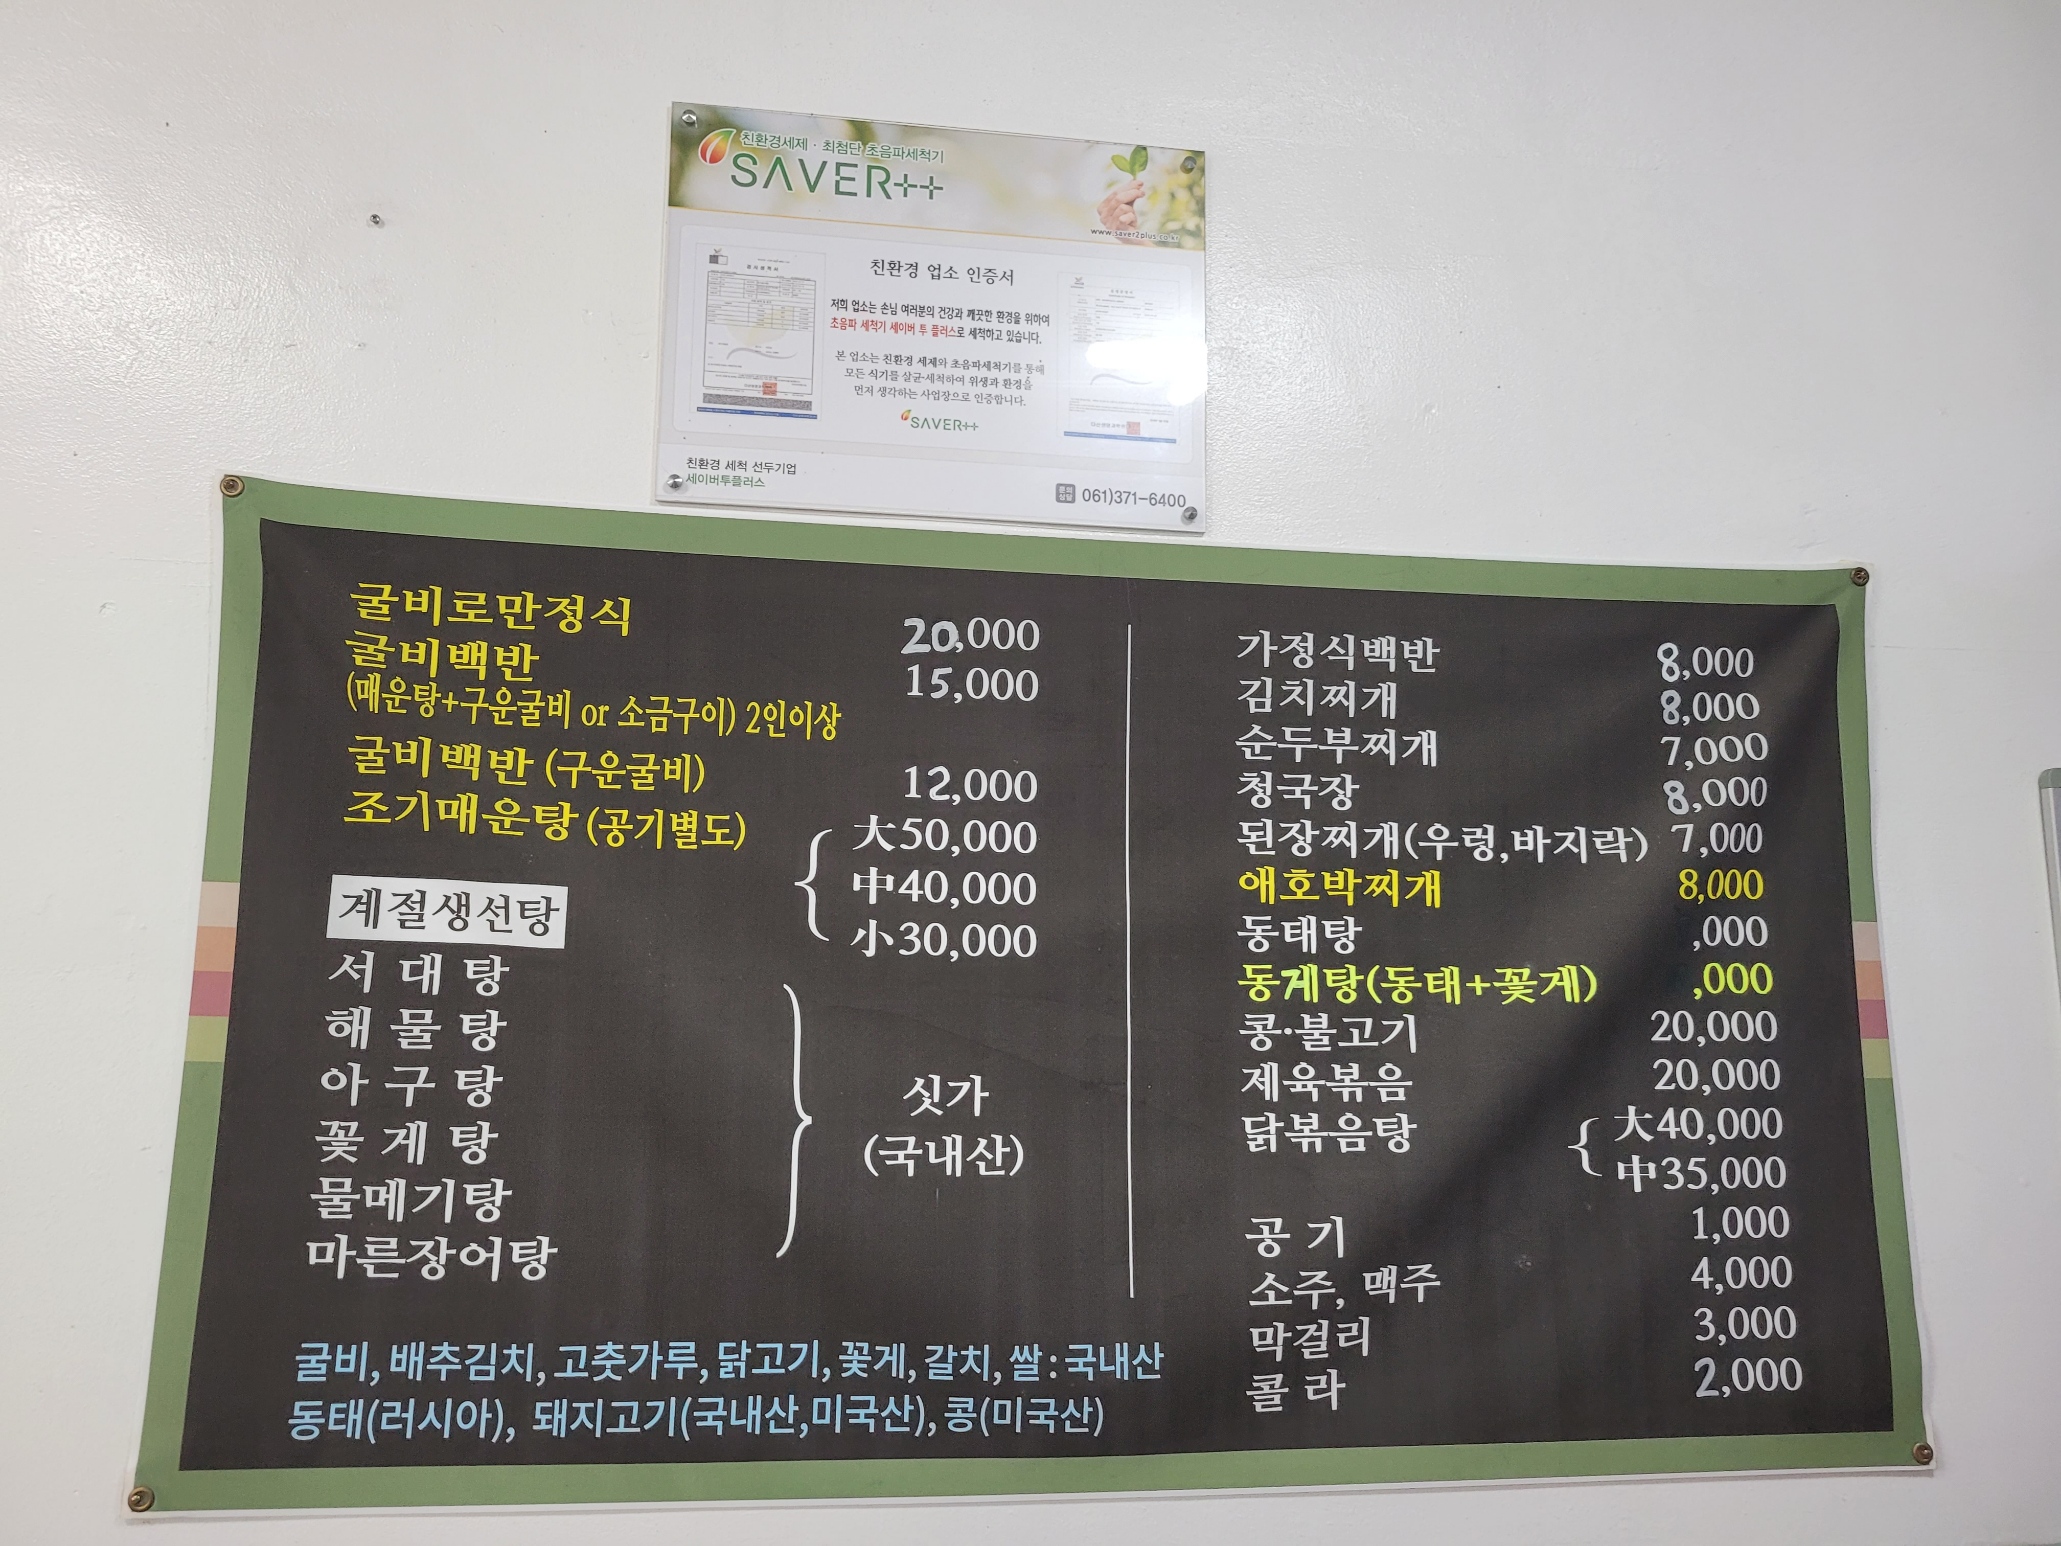 친환경세제 · 최첨단 초음파세척기
SAVER++
www.saver2plus.co.kr
친환경 업소 인증서
저희 업소는 손님 여러분의 건강과 깨끗한 환경을 위하여
초음파 세척기 세이버 투 플러스로 세척하고 있습니다.
본 업소는 친환경 세제와 초음파세척기를 통해
모든 식기를 살균·세척하여 위생과 환경을
먼저 생각하는 사업장으로 인증합니다.
SAVER++
친환경 세척 선두기업
세이버투플러스
문의상담 061)371-6400
굴비로만정식 20,000
굴비백반 15,000
(매운탕+구운굴비 or 소금구이) 2인이상
굴비백반 (구운굴비) 12,000
조기매운탕 (공기별도) 大50,000
中40,000
小30,000
계절생선탕
서대탕
해물탕
아구탕
꽃게탕
물메기탕
마른장어탕
싯가
(국내산)
굴비, 배추김치, 고춧가루, 닭고기, 꽃게, 갈치, 쌀 : 국내산
동태(러시아), 돼지고기(국내산,미국산), 콩(미국산)
가정식백반 8,000
김치찌개 8,000
순두부찌개 7,000
청국장 8,000
된장찌개(우렁,바지락) 7,000
애호박찌개 8,000
동태탕 ,000
동게탕(동태+꽃게) ,000
콩·불고기 20,000
제육볶음 20,000
닭볶음탕 大40,000
中35,000
공기 1,000
소주, 맥주 4,000
막걸리 3,000
콜라 2,000